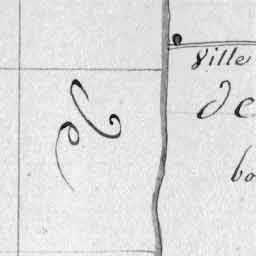 ville
de
bo